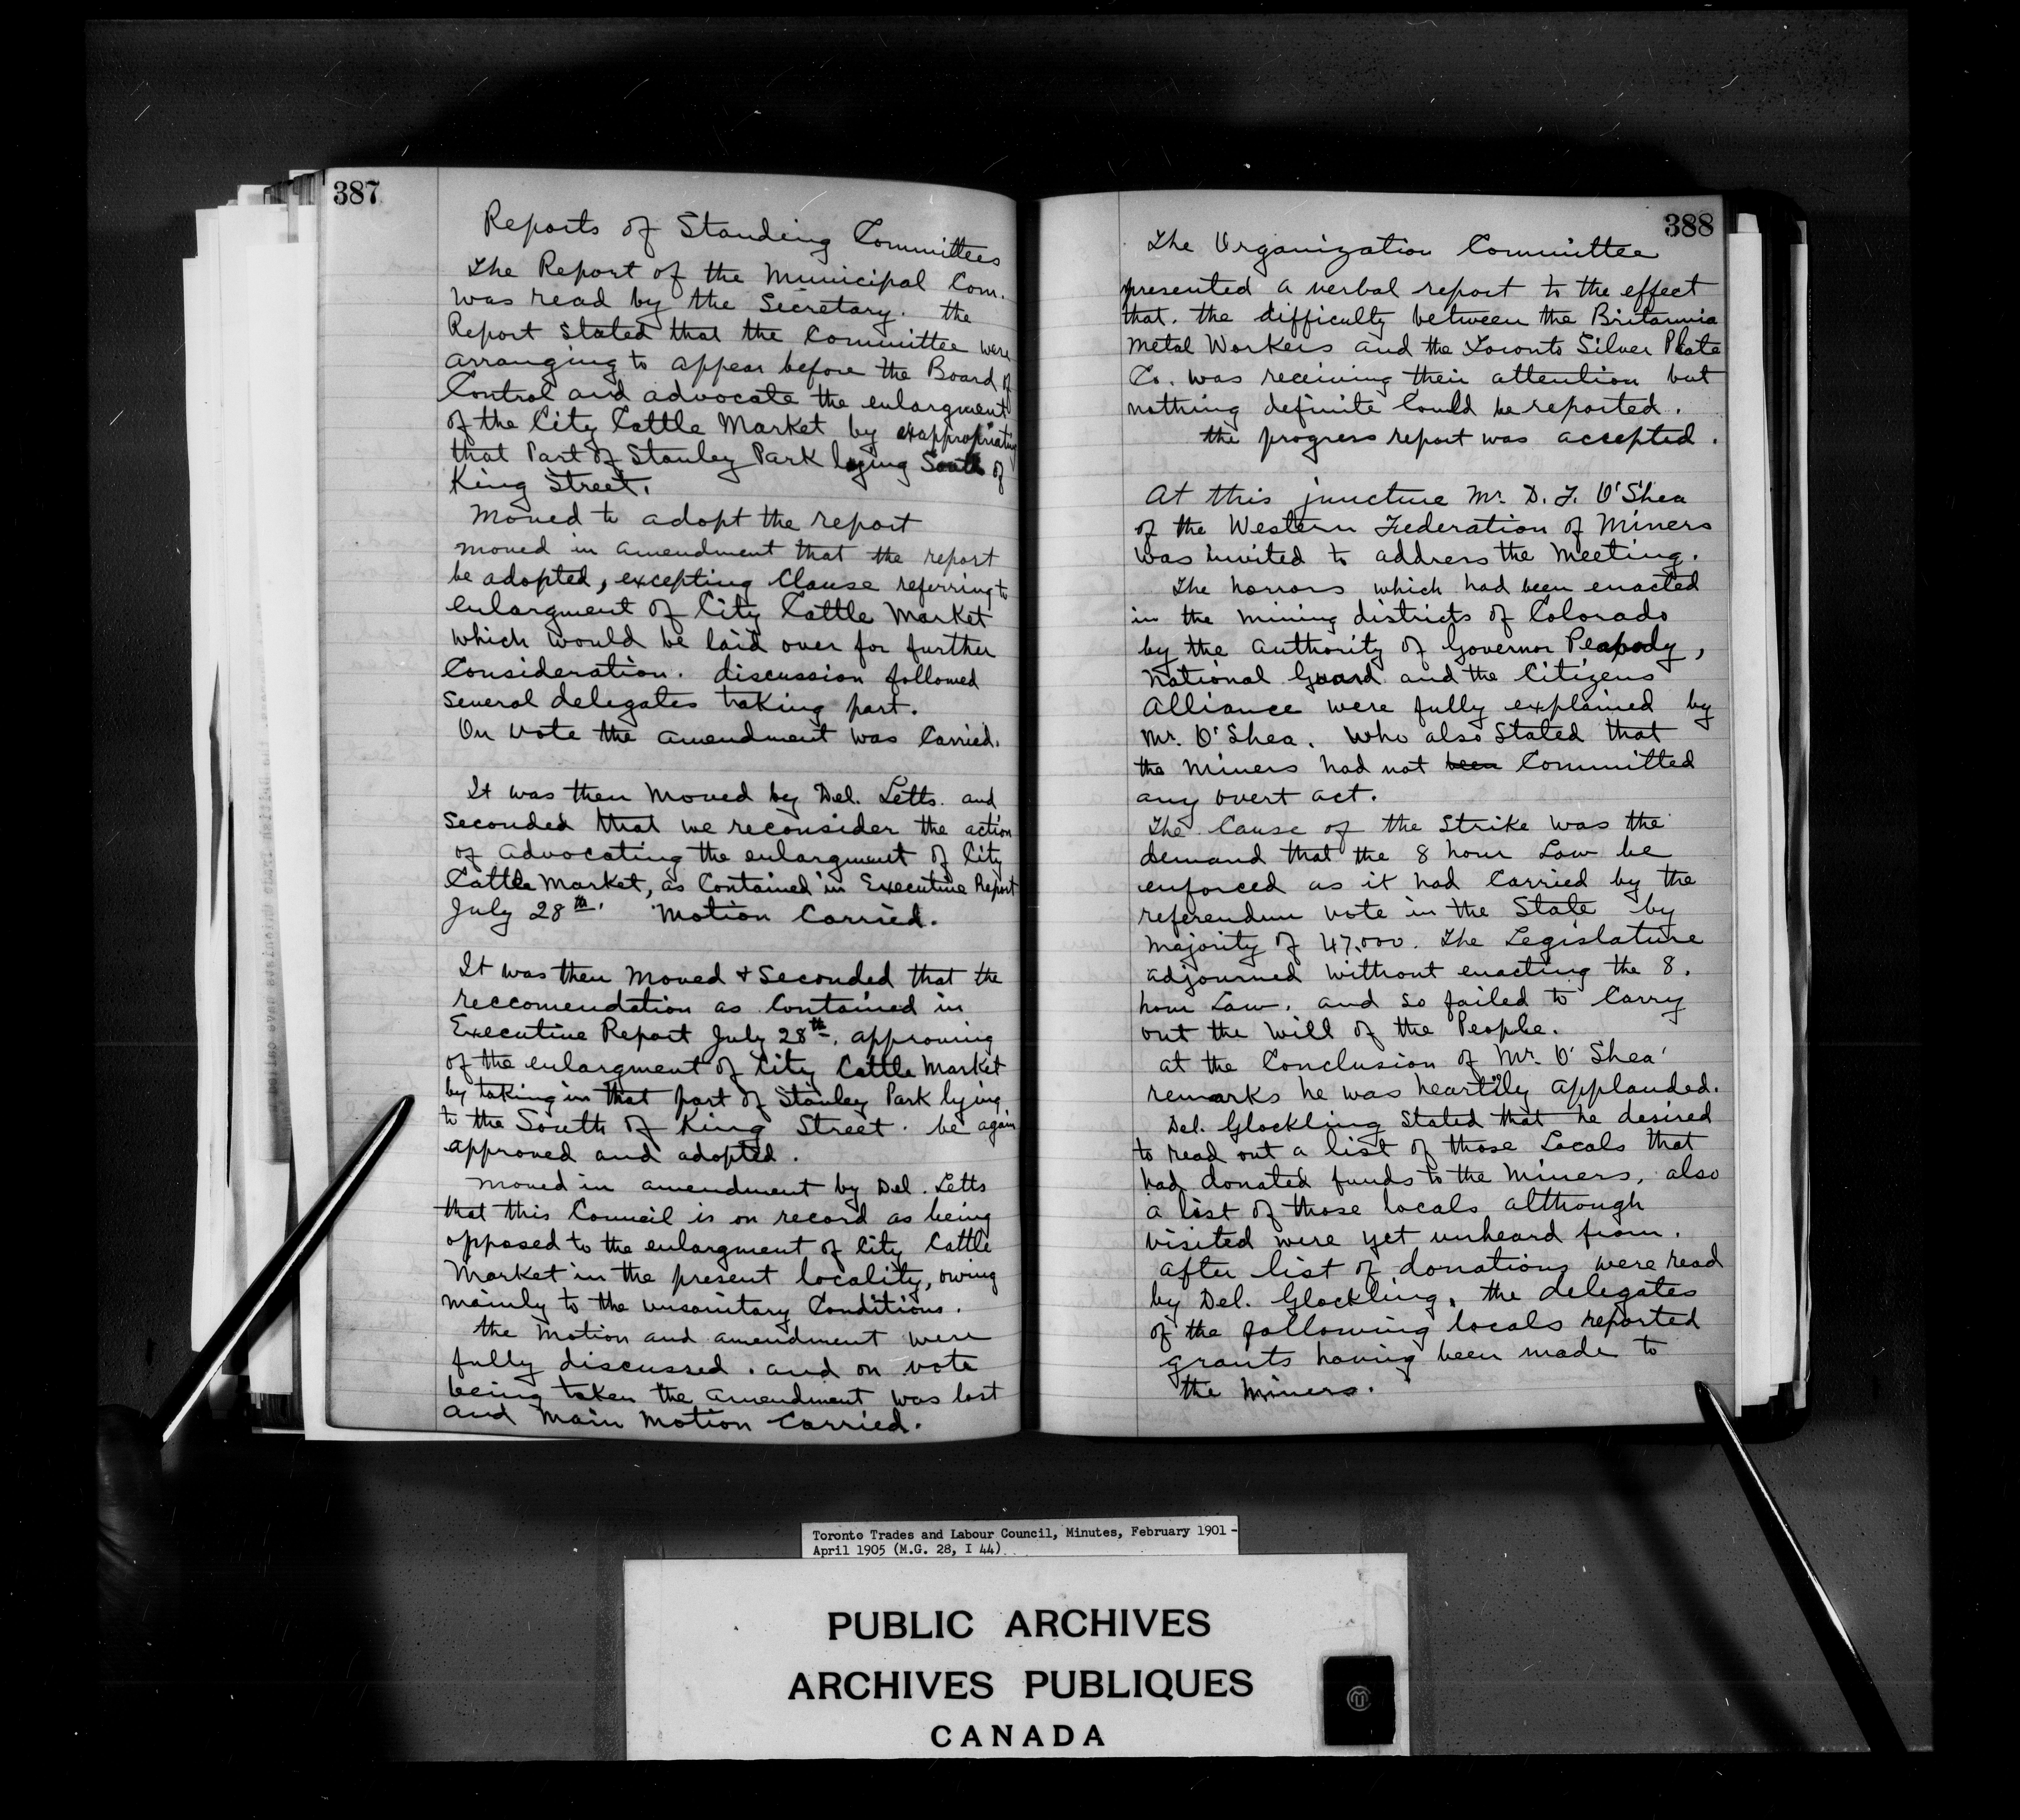 387
Reports of Standing Committees
The Report of the Municipal Com.
was read by the Secretary. the
Report stated that the Committee were
arranging to appear before the Board of
Control and advocate the enlargment
of the City Cattle Market by exappropriating
that Part of Stanley Park lying South of
King Street.
Moved to adopt the report
moved in amendment that the report
be adopted, excepting Clause referring to
enlargment of City Cattle Market
which would be laid over for further
Consideration. discussion followed
several delegates taking part.
On vote the amendment was Carried.
It was then moved by Del. Letts. and
seconded that we reconsider the action
of advocating the enlargment of City
Cattle Market, as Contained in Executive Report
July 28th. Motion Carried.
It was then moved + seconded that the
reccomendation as Contained in
Executive Report July 28th. approving
of the enlargment of City Cattle Market
by taking in that part of Stanley Park lying
to the South of King Street. be again
approved and adopted.
moved in amendment by Del. Letts
that this Council is on record as being
opposed to the enlargment of City Cattle
Market in the present locality, owing
mainly to the unsanitary Conditions.
the motion and amendment were
fully discussed. and on vote
being taken the amendment was lost
and main motion carried.
388
The Organization Committee
presented a verbal report to the effect
that. the difficulty between the Britannia
Metal Workers and the Toronto Silver Plate
Co. was receiving their attention but
nothing definite Could be reported.
the progress report was accepted.
At this juncture Mr. D. F. O'Shea
of the Western Federation of Miners
was invited to address the meeting.
The horrors which had been enacted
in the mining districts of Colorado
by the authority of Governor Peabody,
National Guard and the Citizens
Alliance were fully explained by
Mr. O'Shea. Who also stated that
the Miners had not been Committed
any overt act.
The Cause of the Strike was the
demand that the 8 hour Law be
enforced as it had Carried by the
referendum vote in the State by
majority of 47,000. The Legislature
adjourned without enacting the 8.
hour Law. and so failed to Carry
out the will of the People.
at the Conclusion of Mr. O'Shea'
remarks he was heartily applauded.
Del. Glockling Stated that he desired
to read out a list of those Locals that
had donated funds to the Miners, also
a list of those locals although
visited were yet unheard from.
after list of donations were read
by Del. Glockling, the delegates
of the following locals reported
grants having been made to
the Miners.
Toronto Trades and Labour Council, Minutes, February 1901 -
April 1905 (M.G. 28, I 44)
PUBLIC ARCHIVES
ARCHIVES PUBLIQUES
CANADA